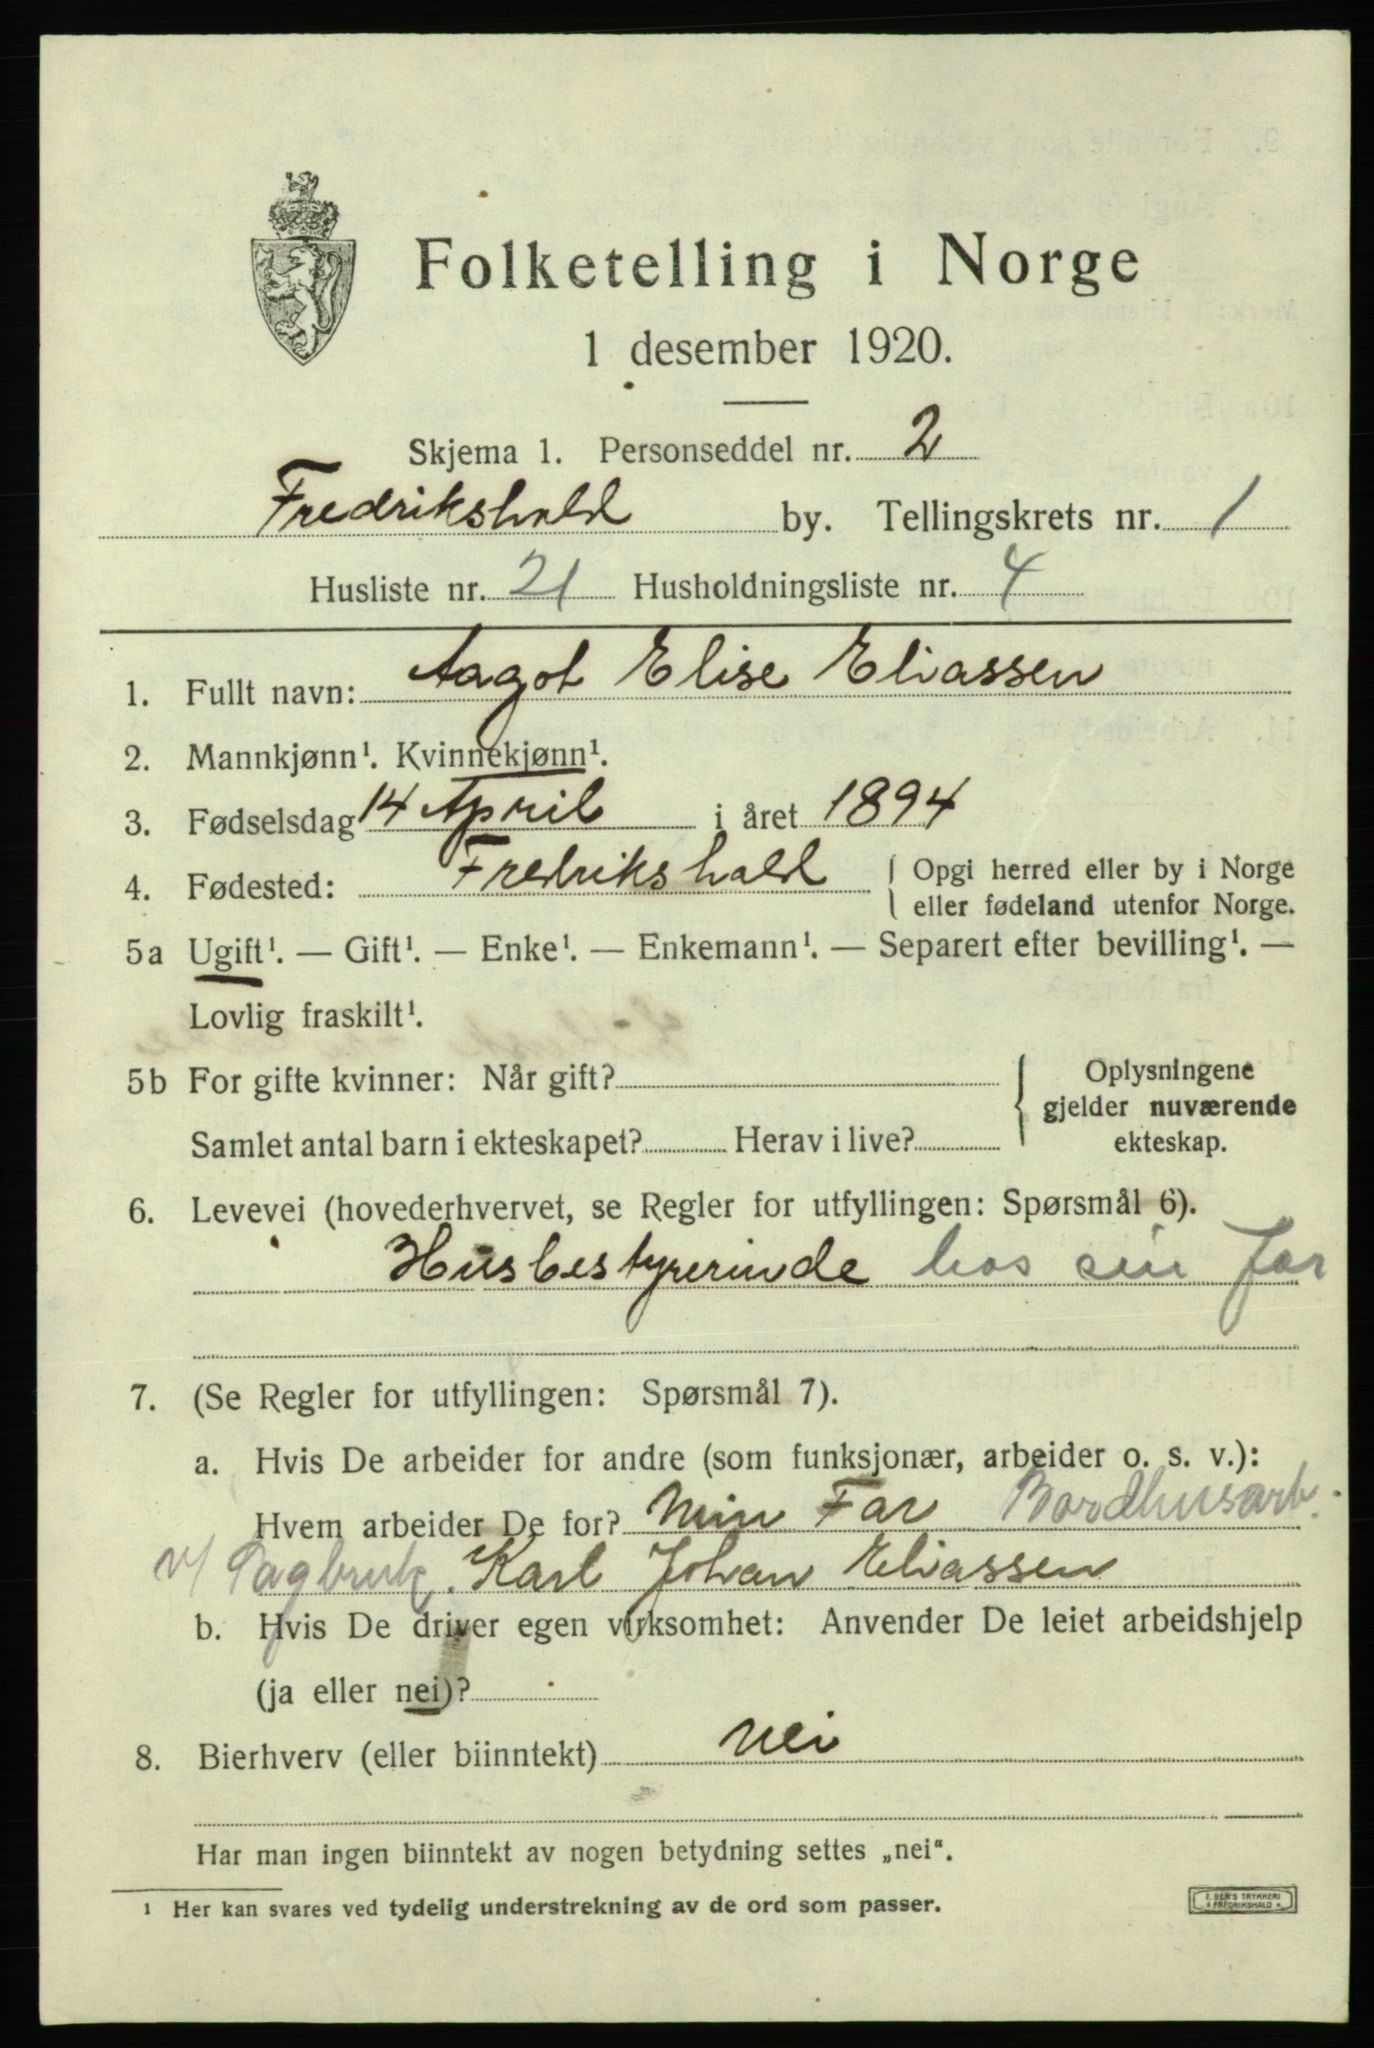 Folketelling i Norge
1 desember 1920.
Skjema 1. Personseddel nr. 2
Fredrikshald by. Tellingskrets nr. 1
Husliste nr. 21 Husholdningsliste nr. 4
1. Fullt navn: Aagot Elise Eliassen
2. Mannkjønn¹. Kvinnekjønn¹.
3. Fødselsdag 14 April i året 1894
4. Fødested: Fredrikshald { Opgi herred eller by i Norge
eller fødeland utenfor Norge.
5a Ugift¹. — Gift¹. — Enke¹. — Enkemann¹. — Separert efter bevilling¹. —
Lovlig fraskilt¹.
5b For gifte kvinner: Når gift? } Oplysningene
gjelder nuværende
Samlet antal barn i ekteskapet? Herav i live? ekteskap.
6. Levevei (hovederhvervet, se Regler for utfyllingen: Spørsmål 6).
Husbestyrerinde hos sin far
7. (Se Regler for utfyllingen: Spørsmål 7).
a. Hvis De arbeider for andre (som funksjonær, arbeider o. s. v.):
Hvem arbeider De for? Min Far Bordhusarb.
v/ Sagbruk. Karl Johan Eliassen
b. Hvis De driver egen virksomhet: Anvender De leiet arbeidshjelp
(ja eller nei)?
8. Bierhverv (eller biinntekt) Nei
Har man ingen biinntekt av nogen betydning settes „nei“.
¹ Her kan svares ved tydelig understrekning av de ord som passer.
TRYKKERI
FREDRIKSHALD